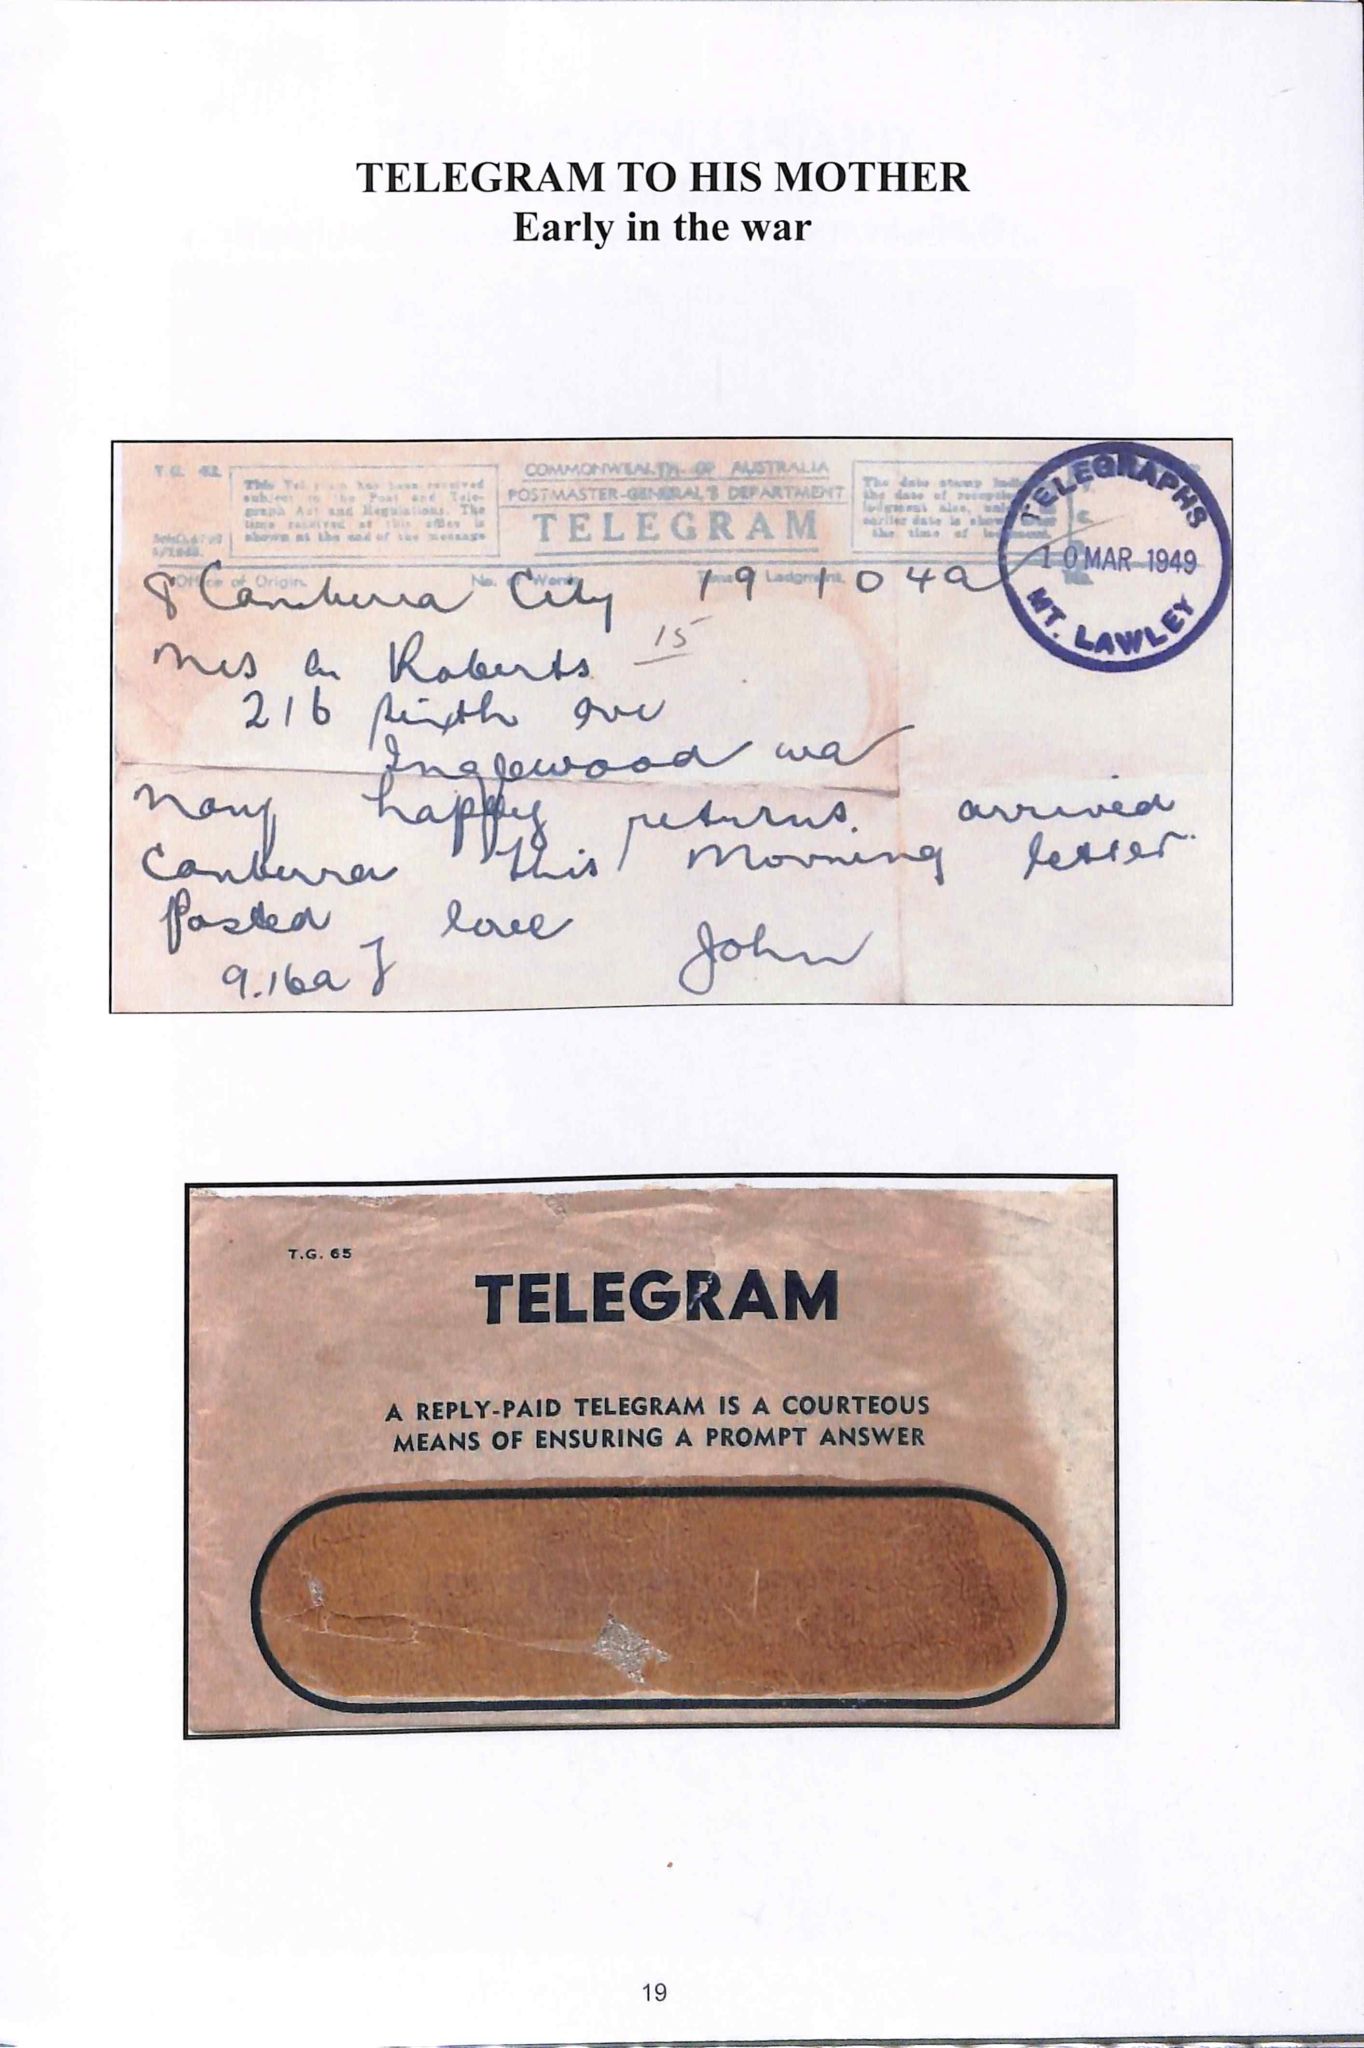 TELEGRAM TO HIS MOTHER
Early in the war
T.G. 42.
This Telegram has been received
subject to the Post and Tele-
graph Act and Regulations. The
time received at this office is
shown at the end of the message
COMMONWEALTH OF AUSTRALIA
POSTMASTER-GENERAL'S DEPARTMENT
TELEGRAM
The date stamp
the date of
lodgment also,
earlier date is shown
the time of
TELEGRAPHS
10 MAR 1949
MT. LAWLEY
Office of Origin. No. of Words. Lodgment.
8 Canberra City 19 104a
15
Mrs Roberts
216 sixth ave
Inglewood wa
Many happy returns. arrived
Canberra this Morning letter
Posted love John
9.16a
T.G. 65
TELEGRAM
A REPLY-PAID TELEGRAM IS A COURTEOUS
MEANS OF ENSURING A PROMPT ANSWER
19